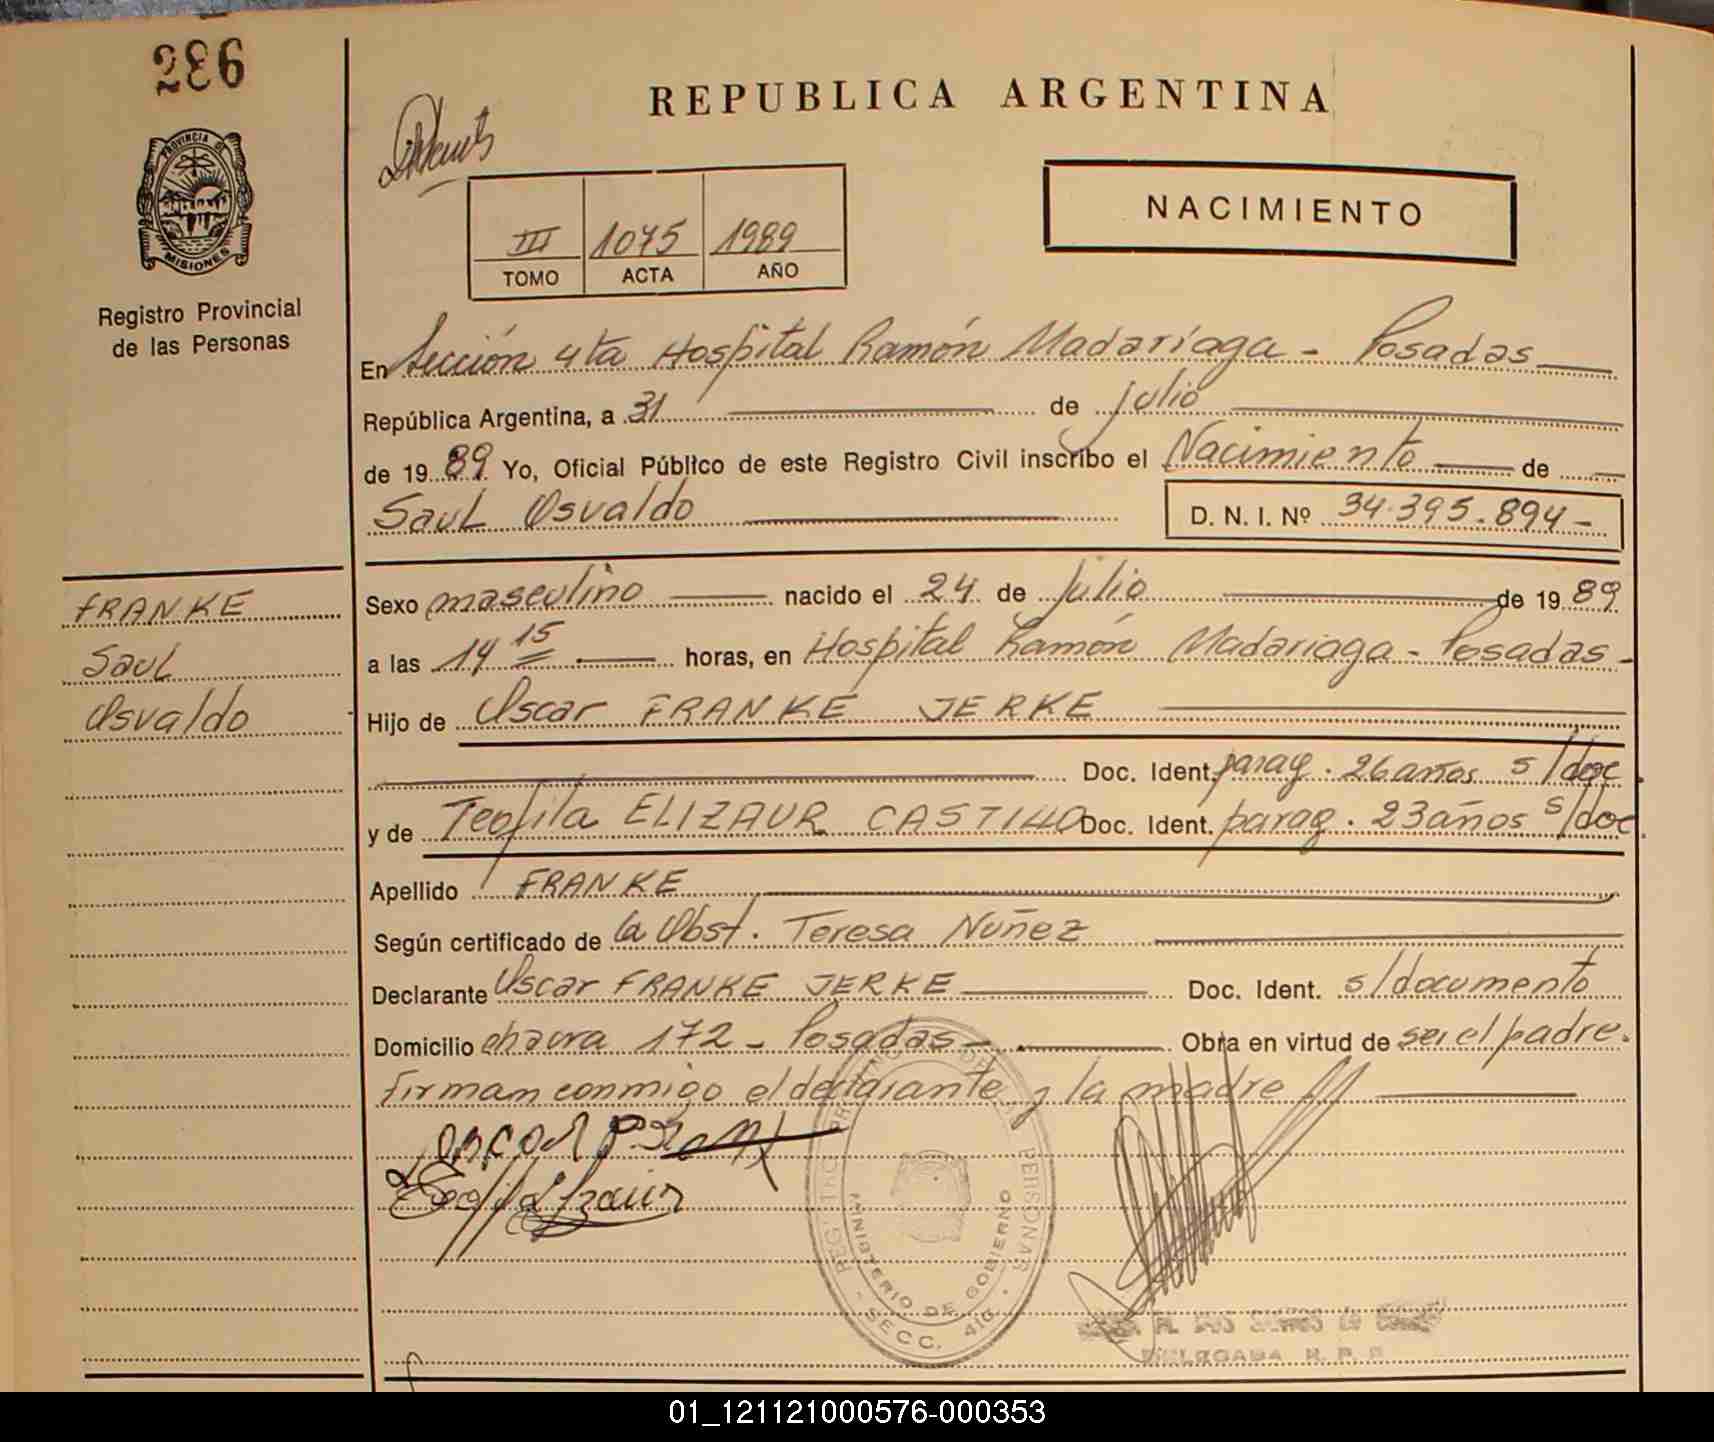 286
REPUBLICA ARGENTINA
PROVINCIA DE
MISIONES
Registro Provincial
de las Personas
III 1075 1989
TOMO ACTA AÑO
NACIMIENTO
En Sección 4ta Hospital Ramón Madariaga - Posadas
República Argentina, a 31 de julio
de 1989 Yo, Oficial Público de este Registro Civil inscribo el Nacimiento de
Saul Osvaldo D. N. I. Nº 34.395.894-
FRANKE
Saul
Osvaldo
Sexo masculino nacido el 24 de julio de 1989
a las 14 15 horas, en Hospital Ramón Madariaga - Posadas -
Hijo de Oscar FRANKE JERKE
Doc. Ident. parag. 26 años s/doc.
y de Teofila ELIZAUR CASTILLO Doc. Ident. parag. 23 años s/doc.
Apellido FRANKE
Según certificado de la Obst. Teresa Nuñez
Declarante Oscar FRANKE JERKE Doc. Ident. s/documento
Domicilio chacra 172 - Posadas - Obra en virtud de ser el padre.
Firman conmigo el declarante y la madre
REGISTRO PERSONAS
MINISTERIO DE GOBIERNO
SECC. 4ta.
DELEGADA R. P. P.
01_121121000576-000353